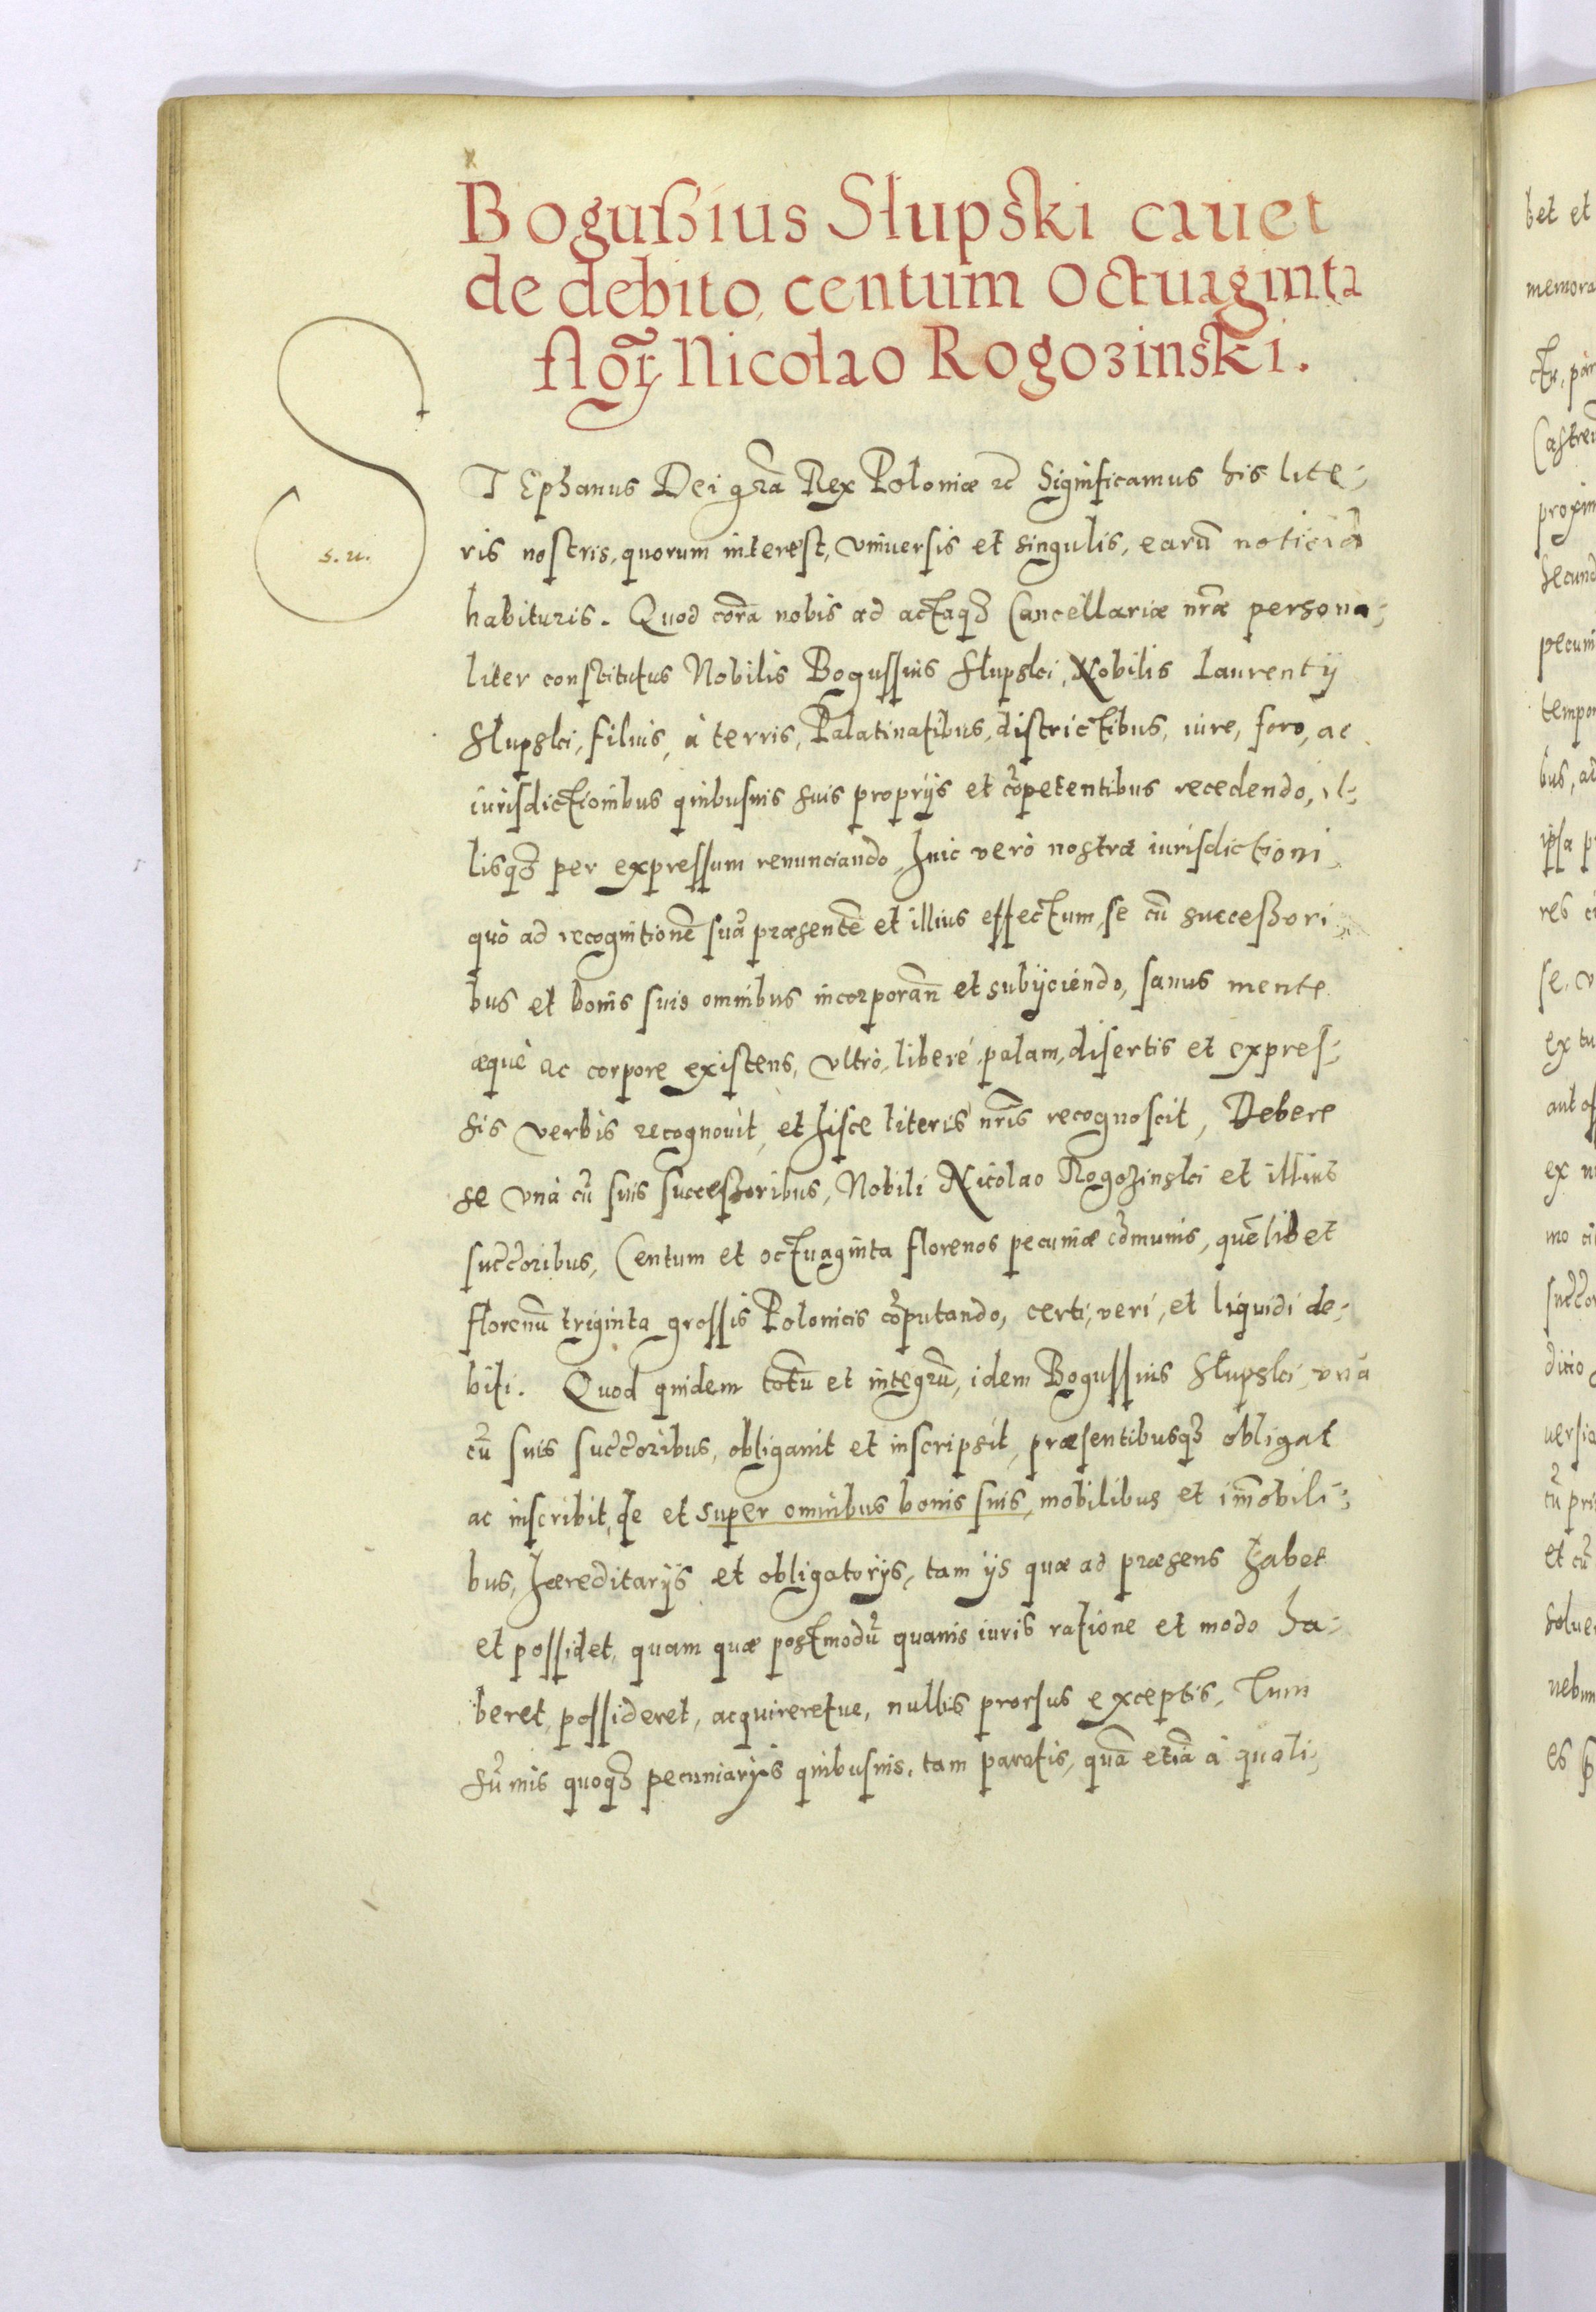 Bogußius Słupski cauet
de debito, centum Octuaginta
florꝝ Nicolao Rogozinski.
S TEphanus Dei gr̃a Rex Poloniæ ꝛc̃ Significamus his lite-
s. u.
ris nostris, quorum interest, vniuersis et singulis, earũ noticiã
habituris. Quod corã nobis ad actaqꝫ Cancellariæ nr̃æ persona-
liter constitutus Nobilis Bogussius Słupski, Nobilis Laurentij
Słupski, filius, à terris, Palatinatibus, districtibus, iure, foro, ac
iurisdictionibus quibusuis suis proprijs et cõpetentibus recedendo, il-
lisqꝫ per expressum renunciando, huic verò nostræ iurisdictioni
quò ad recognitionẽ suã præsentẽ et illius effectum, se cũ succeßori
bus et bonis suis omnibus incorporañ et subijciendo, sanus mente
æquè ac corpore existens, vltrò, liberè, palam, disertis et expres-
sis verbis recognouit, et hisce literis nr̃is recognoscit, Debere
se vnà cũ suis succeßoribus, Nobili Nicolao Rogozinski et illius
succ̃oribus, Centum et octuaginta florenos pecuniæ cõmunis, quẽlibet
florenũ triginta grossis Polonicis cõputando, certi, veri, et liquidi de-
biti. Quod quidem totũ et integrũ, idem Bogussius Słupski, vnà
cũ suis succ̃oribus, obligauit et inscripsit, præsentibusqꝫ obligat
ac inscribit, de et super omnibus bonis suis, mobilibus et im̃obili-
bus, hæreditarijs et obligatorijs, tam ijs quæ ad præsens habet
et possidet, quam quæ postmodũ quauis iuris ratione et modo ha-
beret, possideret, acquireretue, nullis prorsus exceptis, Tum
sũmis quoqꝫ pecuniarijs quibusuis, tam paratis, quã etiã à quali-